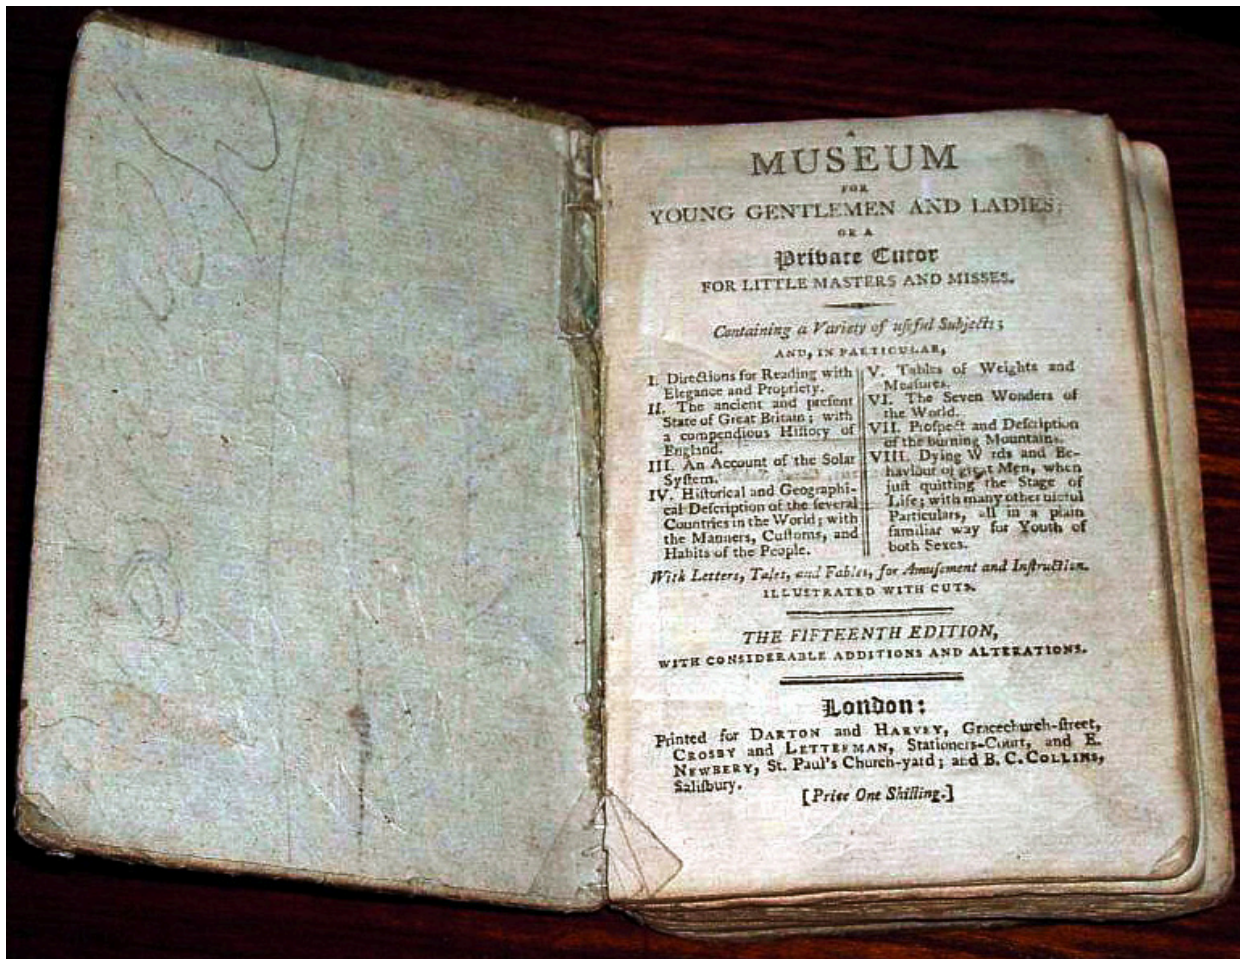 A
MUSEUM
FOR
YOUNG GENTLEMEN AND LADIES;
OR A
Private Tutor
FOR LITTLE MASTERS AND MISSES.
Containing a Variety of uſeful Subjects;
AND, IN PARTICULAR,
I. Directions for Reading with
Elegance and Propriety.
II. The ancient and preſent
State of Great Britain; with
a compendious Hiſtory of
England.
III. An Account of the Solar
Syſtem.
IV. Hiſtorical and Geographi-
cal Deſcription of the ſeveral
Countries in the World; with
the Manners, Cuſtoms, and
Habits of the People.
V. Tables of Weights and
Meaſures.
VI. The Seven Wonders of
the World.
VII. Proſpect and Deſcription
of the burning Mountains.
VIII. Dying W rds and Be-
haviour of great Men, when
juſt quitting the Stage of
Life; with many other uſeful
Particulars, all in a plain
familiar way for Youth of
both Sexes.
With Letters, Tales, and Fables, for Amuſement and Inſtruction.
ILLUSTRATED WITH CUTS.
THE FIFTEENTH EDITION,
WITH CONSIDERABLE ADDITIONS AND ALTERATIONS.
London:
Printed for DARTON and HARVEY, Gracechurch-ſtreet,
CROSBY and LETTERMAN, Stationers-Court, and E.
NEWBERY, St. Paul's Church-yard; and B. C. COLLINS,
Saliſbury.
[Price One Shilling.]